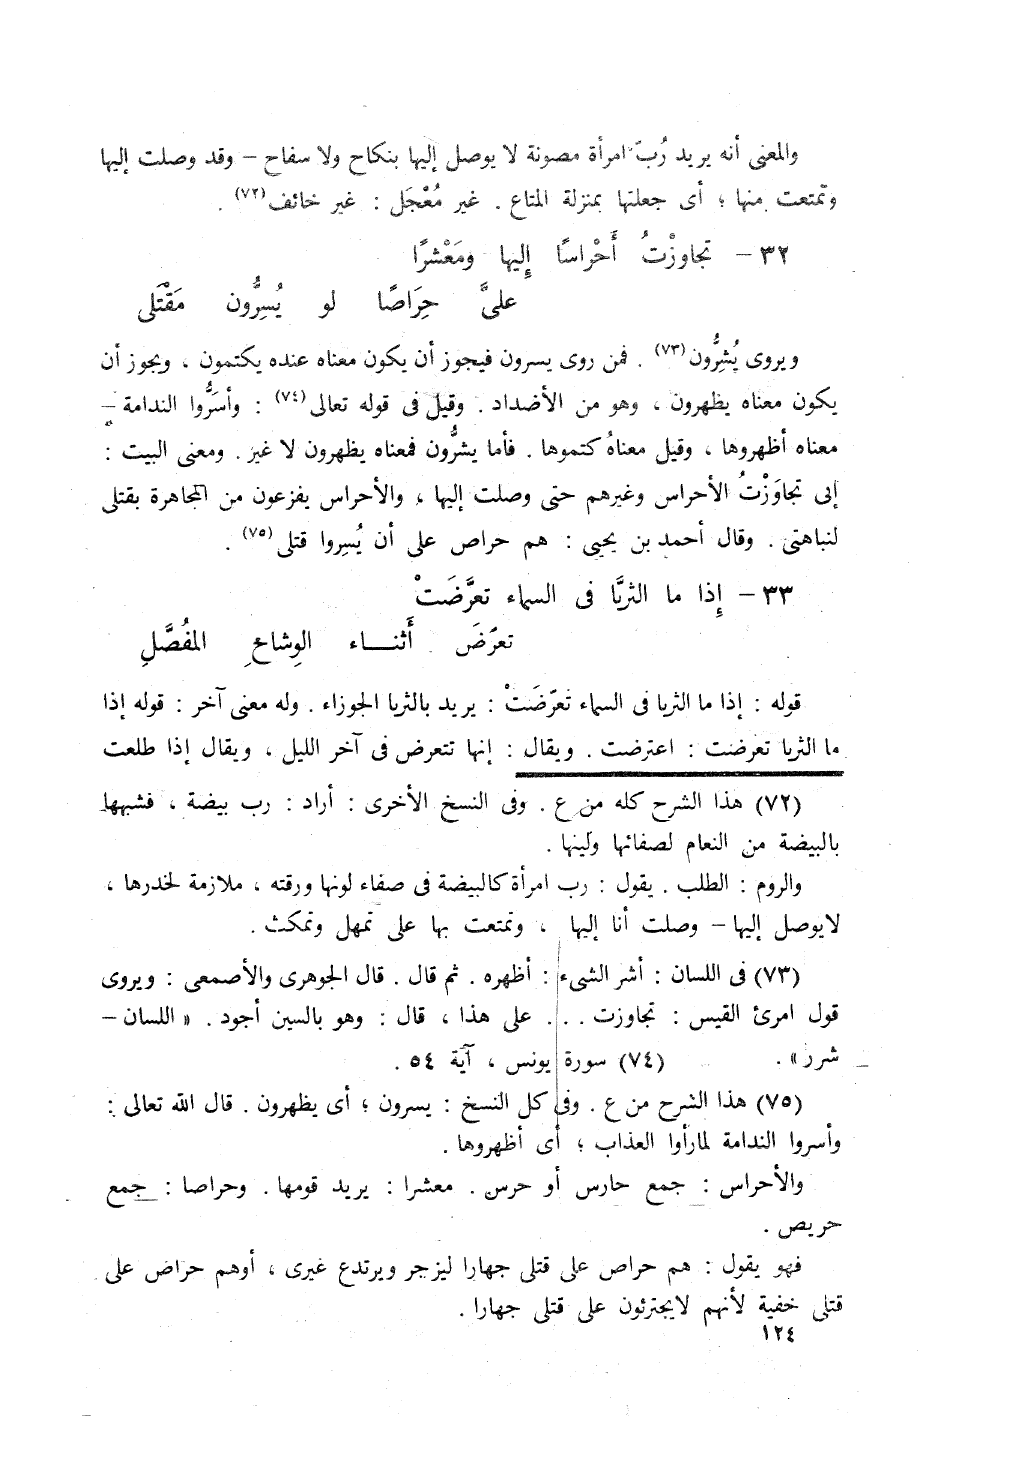 والمعنى أنه يريد رُبّ امرأة مصونة لا يوصل إليها بنكاح ولا سفاح – وقد وصلت إليها
وتمتعت منها ؛ أى جعلتها بمنزلة المتاع . غير مُعْجَل : غير خائف (٧٢) .
٣٢ – تجاوزْتُ أَحْراسًا إِليها ومَعْشرًا
علىَّ حِرَاصًا لو يُسِرُّون مَقْتَلى
ويروى يُشِرُّون (٧٣) . فمن روى يسرون فيجوز أن يكون معناه عنده يكتمون ، ويجوز أن
يكون معناه يظهرون ، وهو من الأضداد . وقيل فى قوله تعالى (٧٤) : وأسَرُّوا الندامة –
معناه أظهروها ، وقيل معناهُ كتموها . فأما يشرُّون فمعناه يظهرون لا غير . ومعنى البيت :
إنى تجاوَزْتُ الأحراس وغيرهم حتى وصلت إليها ، والأحراس يفزعون من المجاهرة بقتلى
لنباهتى . وقال أحمد بن يحيى : هم حراص على أن يُسِروا قتلى (٧٥) .
٣٣ – إِذا ما الثريَّا فى السماء تعرَّضَتْ
تعرّضَ أَثنـــاء الوِشاحِ المفُصَّلِ
قوله : إذا ما الثريا فى السماء تعرّضَتْ : يريد بالثريا الجوزاء . وله معنى آخر : قوله إذا
ما الثريا تعرضت : اعترضت . ويقال : إنها تتعرض فى آخر الليل ، ويقال إذا طلعت
(٧٢) هذا الشرح كله من ع . وفى النسخ الأخرى : أراد : رب بيضة ، فشبهها
بالبيضة من النعام لصفائها ولينها .
والروم : الطلب . يقول : رب امرأة كالبيضة فى صفاء لونها ورقته ، ملازمة لخدرها ،
لايوصل إليها – وصلت أنا إليها ، وتمتعت بها على تمهل وتمكث .
(٧٣) فى اللسان : أشر الشىء : أظهره . ثم قال . قال الجوهرى والأصمعى : ويروى
قول امرئ القيس : تجاوزت . . . على هذا ، قال : وهو بالسين أجود . « اللسان –
شرر » . (٧٤) سورة يونس ، آية ٥٤ .
(٧٥) هذا الشرح من ع . وفى كل النسخ : يسرون ؛ أى يظهرون . قال الله تعالى :
وأسروا الندامة لمارأوا العذاب ؛ أى أظهروها .
والأحراس : جمع حارس أو حرس . معشرا : يريد قومها . وحراصا : جمع
حريص .
فهو يقول : هم حراص على قتلى جهارا ليزجر ويرتدع غيرى ، أوهم حراض على
قتلى خفية لأنهم لايجترئون على قتلى جهارا .
١٢٤